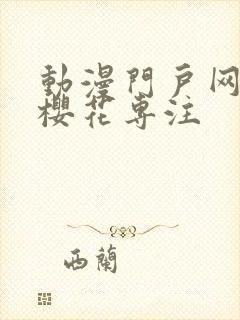 動漫門戶网
櫻花專注
西蘭